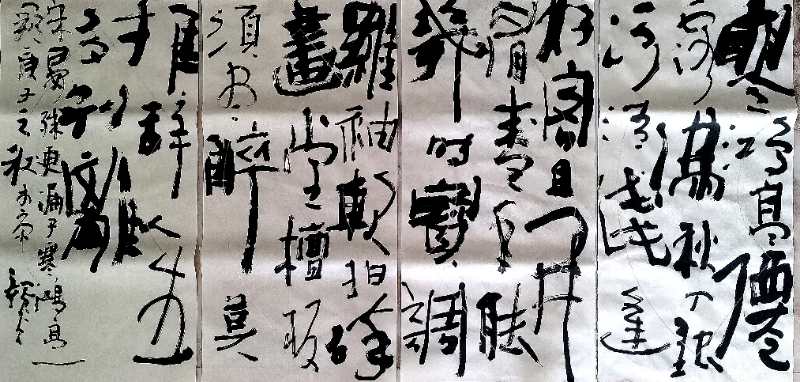 塞鴻高僊
露滿秋入銀
河清淺逢
好客且開
眉盛年能
幾時寶調
羅袖軟拍碎
畫堂檀板
須尽醉莫
推辭人生
多別離
宋晏殊更漏子塞鴻高一
闋庚子之秋